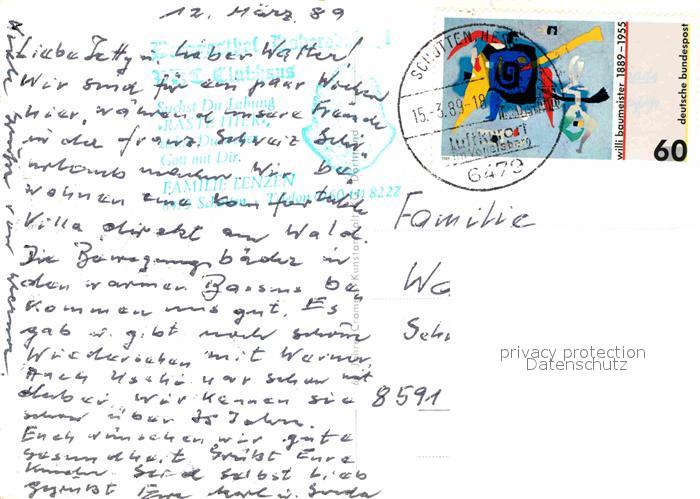 12. März 89
Liebe Jetty, lieber Walter!
Wir sind für ein paar Wochen
hier, während unsere Freunde
in der franz. Schweiz Ski-
urlaub machen. Wir be-
wohnen eine komfortable
Villa direkt am Wald.
Die Bewegungsbäder in
den warmen Bassins be-
kommen uns gut. Es
gab u. gibt noch schöne
Wiedersehen mit Werner
Auch Uschi war schon mit
da bei. Wir kennen sie
schon über 35 Jahre.
Euch wünschen wir gute
Gesundheit. Grüßt Eure
Kinder. Seid selbst lieb
gegrüßt Eure Karl u. Gerda
Auch Grüße von Werner
VDC Clubhaus
Suchst Du Labung
RASTE HIER,
Gott mit Dir.
FAMILIE LENZEN
Telefon 8222
SCHOTTEN, HES
15.-3.89-18
Luftkurort
Vogelsberg
6479
willi baumeister 1889-1955
deutsche bundespost
60
Familie
Wa
Sch
8591
privacy protection
Datenschutz